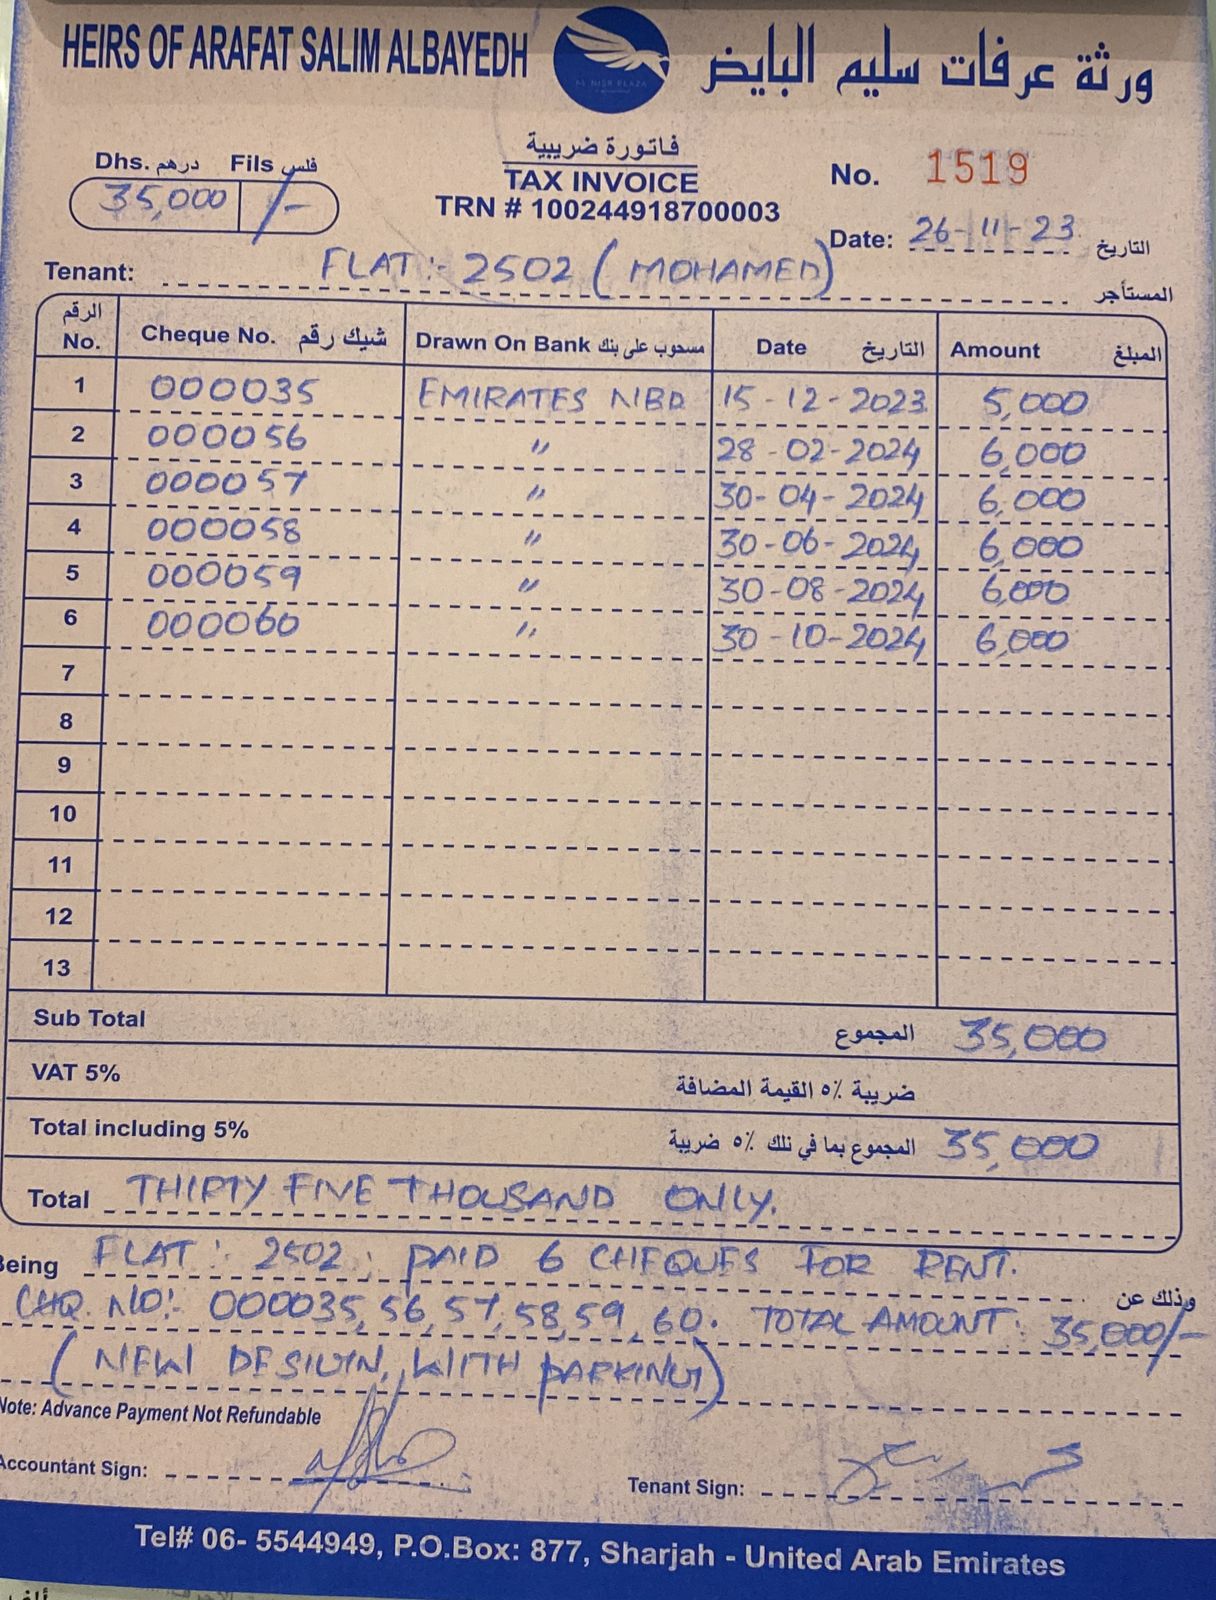 HEIRS OF ARAFAT SALIM ALBAYEDH ورثة عرفات سليم البايض
AL NISR PLAZA
فاتورة ضريبية
TAX INVOICE
TRN # 100244918700003
Dhs. درهم Fils فلس
35,000 /-
No. 1519
Date: 26-11-23 التاريخ
Tenant: FLAT:- 2502 (MOHAMED) المستأجر
الرقم No. Cheque No. شيك رقم Drawn On Bank مسحوب على بنك Date التاريخ Amount المبلغ
1 000035 EMIRATES NBD 15-12-2023 5,000
2 000056 " 28-02-2024 6,000
3 000057 " 30-04-2024 6,000
4 000058 " 30-06-2024 6,000
5 000059 " 30-08-2024 6,000
6 000060 " 30-10-2024 6,000
7
8
9
10
11
12
13
Sub Total المجموع 35,000
VAT 5% ضريبة ٥٪ القيمة المضافة
Total including 5% المجموع بما في ذلك ٥٪ ضريبة 35,000
Total THIRTY FIVE THOUSAND ONLY.
Being FLAT: 2502, PAID 6 CHEQUES FOR RENT. وذلك عن
CHQ. NO: 000035, 56, 57, 58, 59, 60. TOTAL AMOUNT: 35,000/-
(NEW DESIGN, WITH PARKING)
Note: Advance Payment Not Refundable
Accountant Sign:
Tenant Sign:
Tel# 06- 5544949, P.O.Box: 877, Sharjah - United Arab Emirates